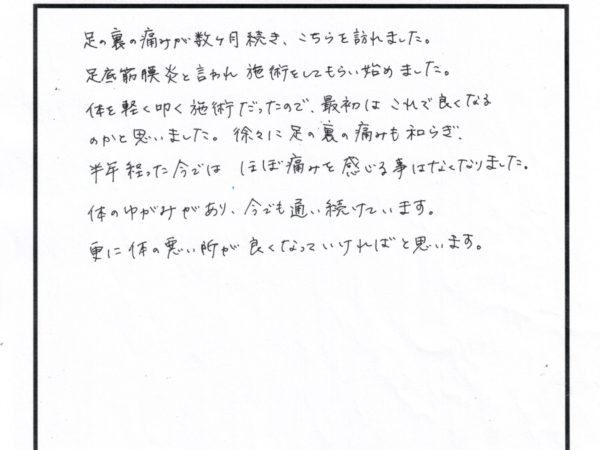 足の裏の痛みが数ヶ月続き、こちらを訪れました。
足底筋膜炎と言われ施術をしてもらい始めました。
体を軽く叩く施術だったので、最初はこれで良くなる
のかと思いました。徐々に足の裏の痛みも和らぎ、
半年経った今ではほぼ痛みを感じる事はなくなりました。
体のゆがみがあり、今でも通い続けています。
更に体の悪い所が良くなっていければと思います。